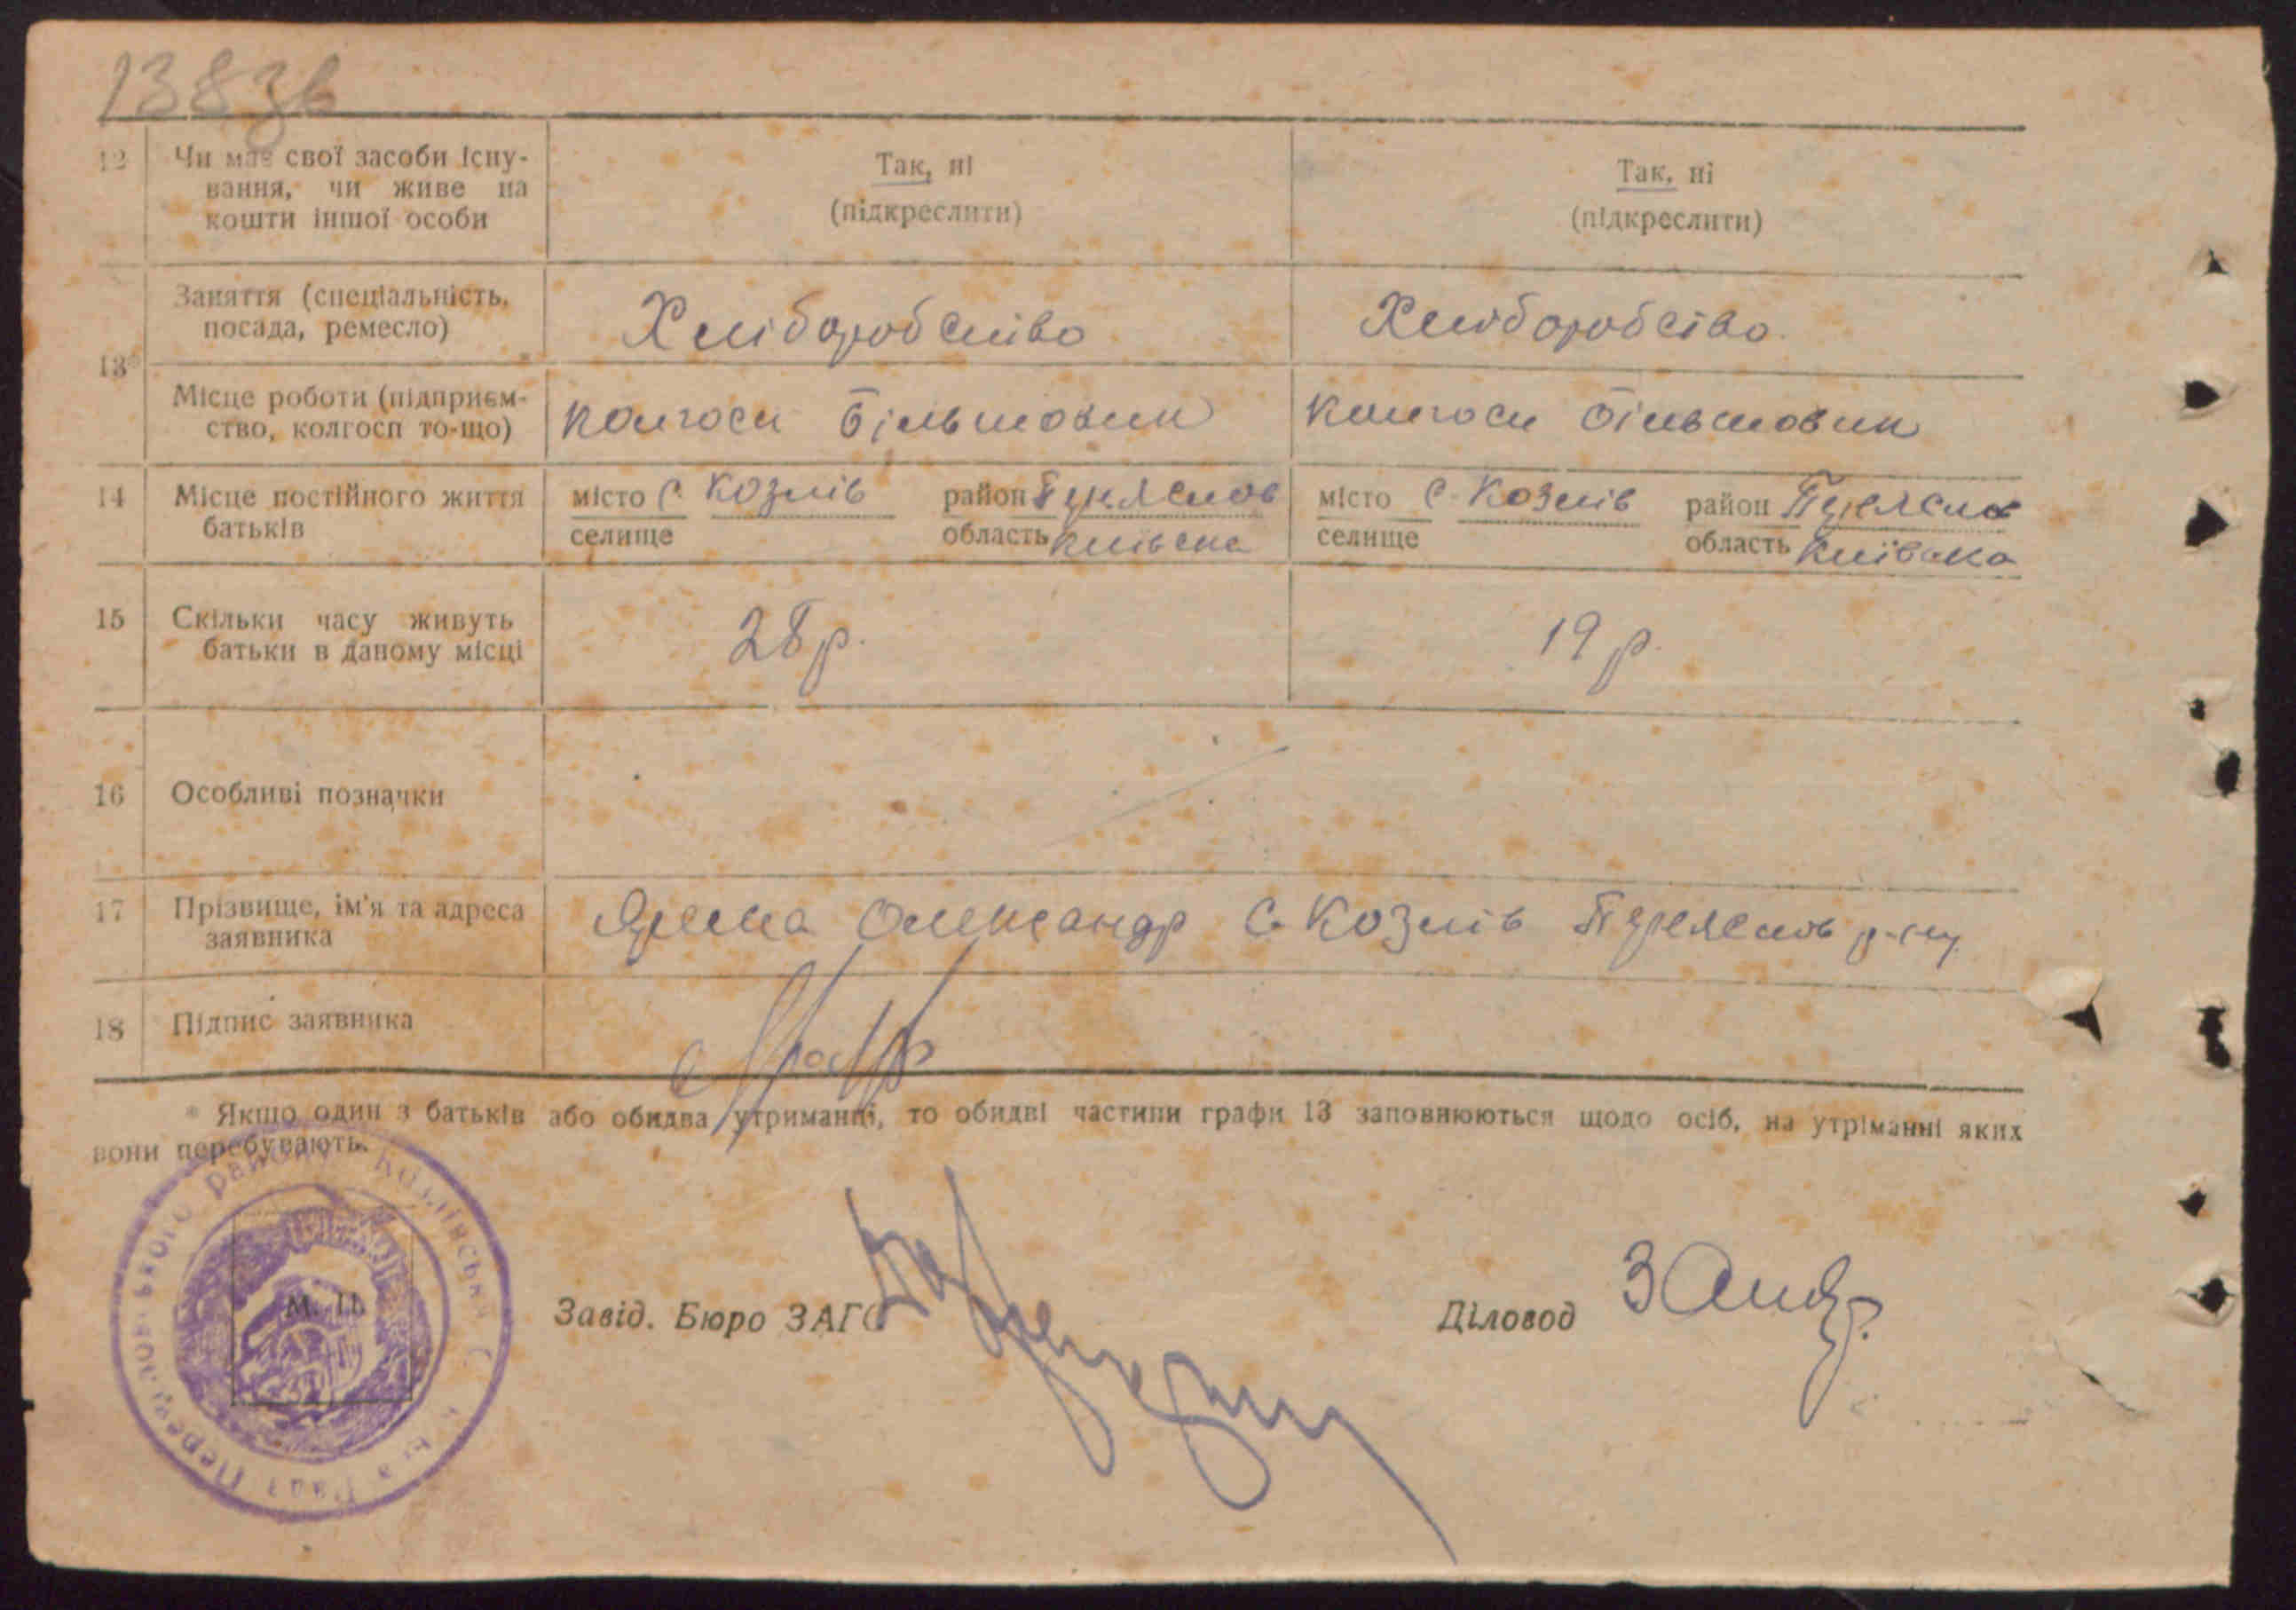 138зв
12 Чи має свої засоби існу-
вання, чи живе на
кошти іншої особи
Так, ні
(підкреслити)
Так, ні
(підкреслити)
13*
Заняття (спеціальність,
посада, ремесло)
Хліборобство
Хліборобство.
Місце роботи (підприєм-
ство, колгосп то-що)
колгосп більшовик
колгосп більшовик
14 Місце постійного життя
батьків
місто с. Козлів район Переяслов
селище область київська
місто с. Козлів район Переяслов
селище область київська
15 Скільки часу живуть
батьки в даному місці
28 р.
19 р.
16 Особливі позначки
17 Прізвище, ім'я та адреса
заявника
Олександр с. Козлів Переяслов р-ну
18 Підпис заявника
* Якщо один з батьків або обидва утриманці, то обидві частини графи 13 заповнюються щодо осіб, на утріманні яких
вони перебувають.
району Козлівська С
Рада Переяславського
М. П.
Завід. Бюро ЗАГС
Діловод